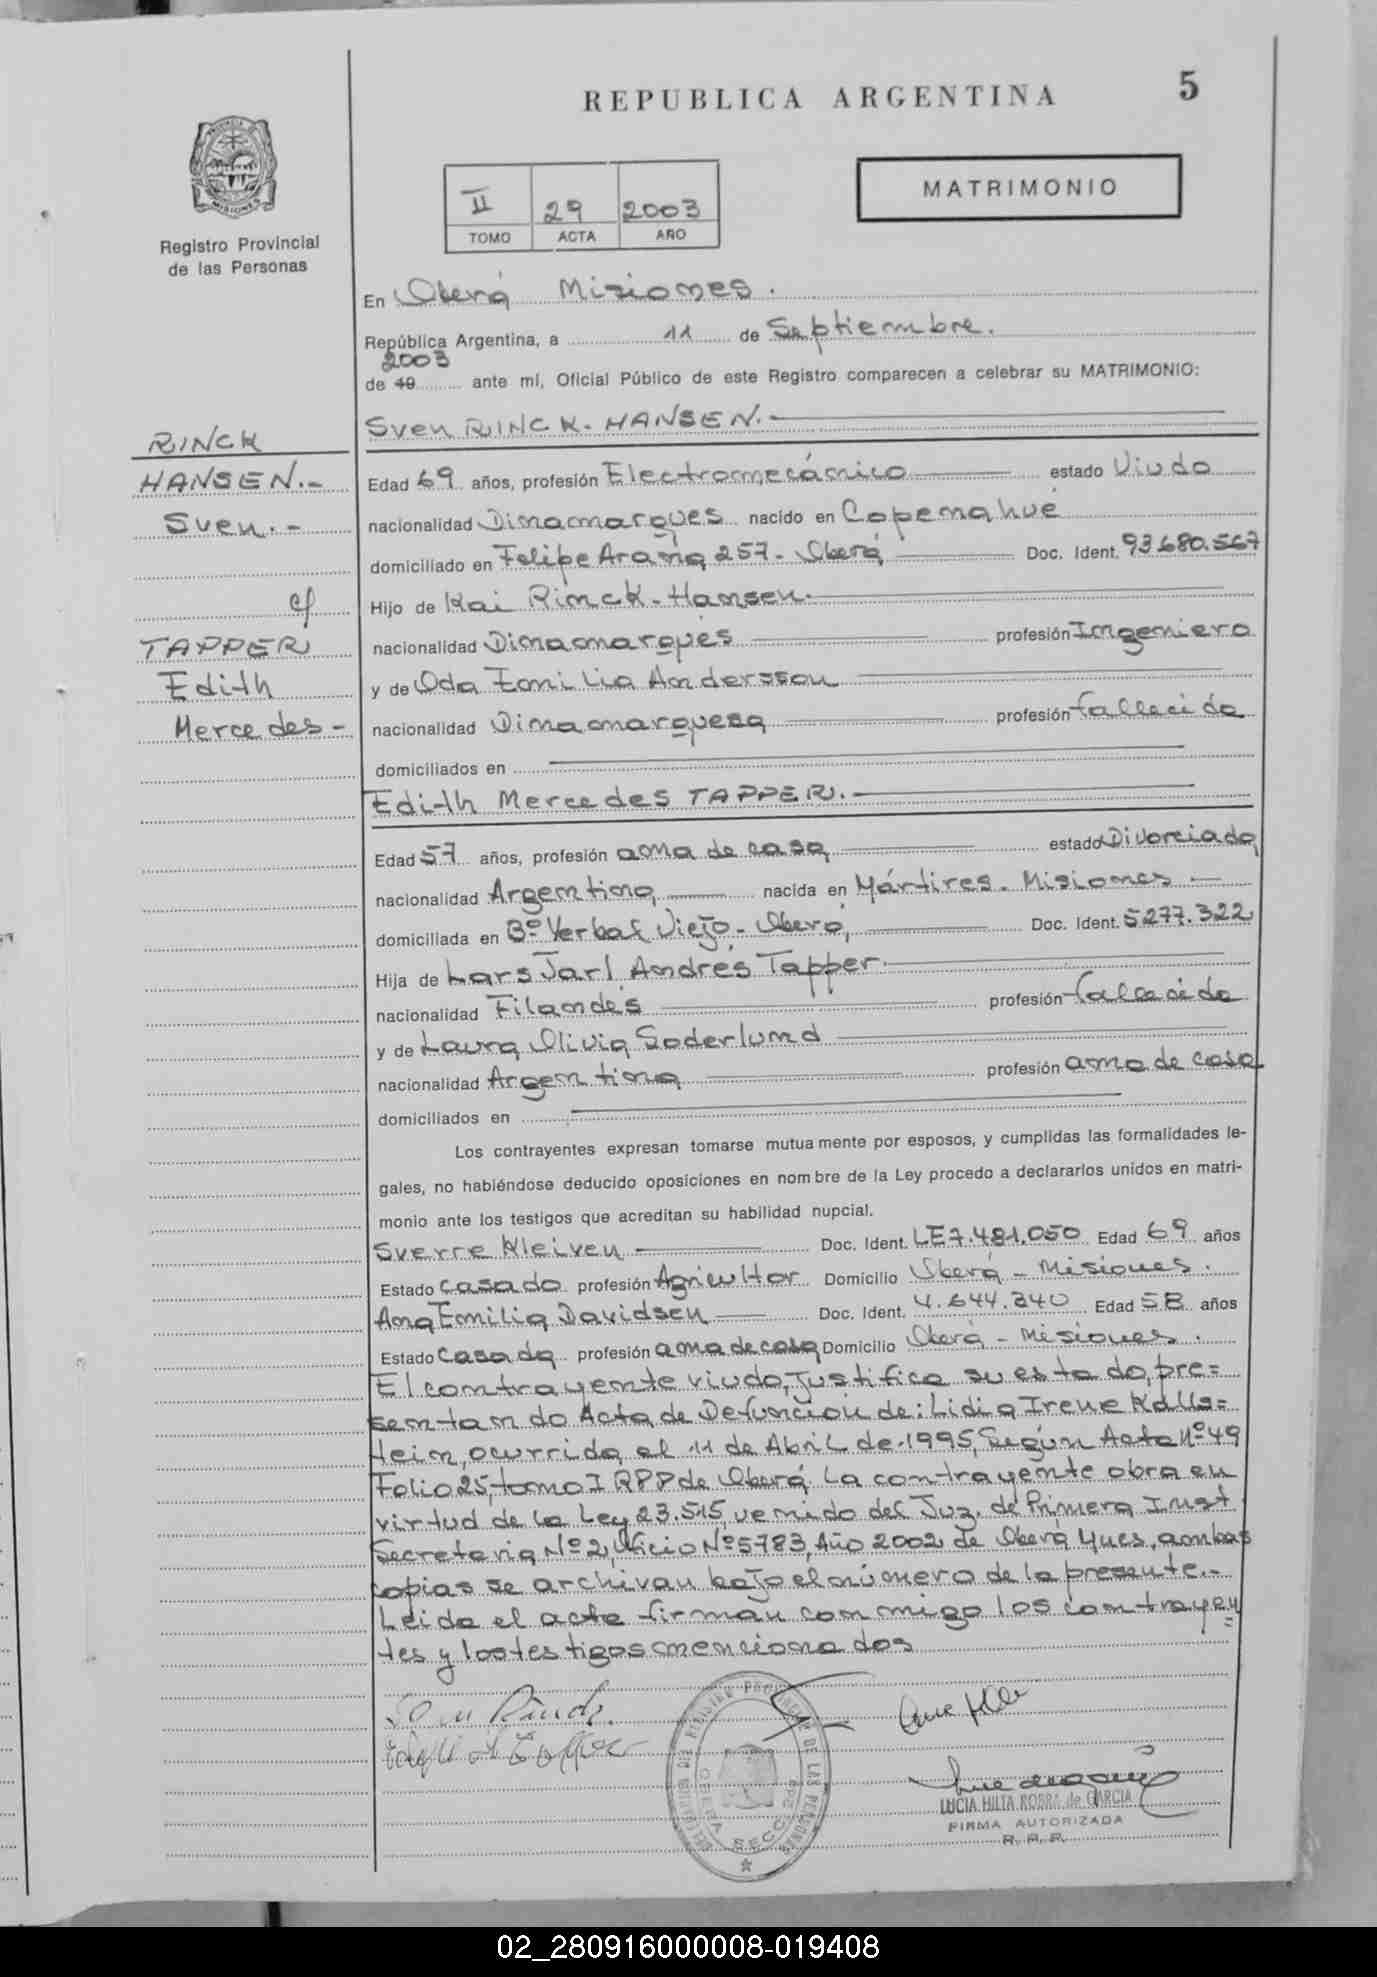 REPUBLICA ARGENTINA
5
MATRIMONIO
II 29 2003
TOMO ACTA AÑO
Registro Provincial
de las Personas
En Oberá Misiones.
República Argentina, a 11 de Septiembre.
2003
de 19 ante mí, Oficial Público de este Registro comparecen a celebrar su MATRIMONIO:
RINCK
HANSEN.-
Sven.-
c/
TAPPER
Edith
Mercedes-
Sven RINCK-HANSEN.-
Edad 69 años, profesión Electromecánico estado Viudo
nacionalidad Dinamarqués nacido en Copenahué
domiciliado en Felipe Arana 257- Oberá Doc. Ident. 93.680.567
Hijo de Kai Rinck-Hansen.
nacionalidad Dinamarqués profesión Ingeniero
y de Oda Emilia Anderssou
nacionalidad Dinamarquesa profesión fallecida
domiciliados en
Edith Mercedes TAPPER.-
Edad 57 años, profesión ama de casa estado Divorciada
nacionalidad Argentina, nacida en Mártires- Misiones -
domiciliada en Bº Yerbal Viejo- Oberá, Doc. Ident. 5277.322
Hija de Lars Jarl Andrés Tapper.
nacionalidad Filandés profesión fallecido
y de Laura Olivia Soderlund
nacionalidad Argentina profesión ama de casa
domiciliados en
Los contrayentes expresan tomarse mutuamente por esposos, y cumplidas las formalidades le-
gales, no habiéndose deducido oposiciones en nombre de la Ley procedo a declararlos unidos en matri-
monio ante los testigos que acreditan su habilidad nupcial.
Sverre Kleiven Doc. Ident. LE7.481.050 Edad 69 años
Estado Casado profesión Agricultor Domicilio Oberá - Misiones.
Ana Emilia Davidsen Doc. Ident. 4.644.240 Edad 58 años
Estado Casada profesión ama de casa Domicilio Oberá - Misiones.
El contrayente viudo, justifica su estado, pre=
sentando Acta de Defunción de: Lidia Irene Kalls=
tein, ocurrida el 11 de Abril de 1995, Según Acta Nº 49
Folio 25, tomo I RPP de Oberá. La contrayente obra en
virtud de la Ley 23.515, venido del Juz. de Primera Inst
Secretaria Nº 2, Oficio Nº 5783, Año 2002 de Oberá Mnes, ambas
copias se archivan bajo el número de la presente.-
Leída el acta firman conmigo los contrayen
tes y los testigos mencionados
REGISTRO PROVINCIAL DE LAS PERSONAS
OBERA SECC.
LUCIA HILTA ROBRA de GARCIA
FIRMA AUTORIZADA
R. P. P.
02_280916000008-019408